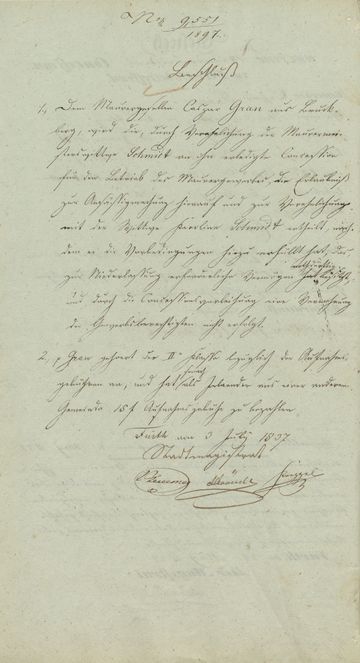 Nr. 9551
1837.
Beschluß
1., Dem Maurergesellen Caspar Gran aus Bruck-
berg, wird die, durch Verehelichung der Maurermei-
sterswittwe Schmidt an ihn erledigte Concession
für den Betrieb des Maurergewerbes, die Erlaubniß
zur Ansäßigmachung hierauf und zur Verehelichung
mit der Wittwe Schmidt ertheilt, nach-
dem er die Vorbedingungen hiezu erfüllt hat, das
zur Niederlassung erforderliche Vermögen besitzt,
und durch die Concessionsverleihung eine
der Gewerbsberechtigten nicht erfolgt.
2., Gran gehoert der II Klasse bezüglich der Aufnahms-
gebühren an, und hat als aus einer anderen
Gemeinde 15 f Aufnahmsgebühr zu bezahlen.
Fürth am 3 July 1837
Stadtmagistrat